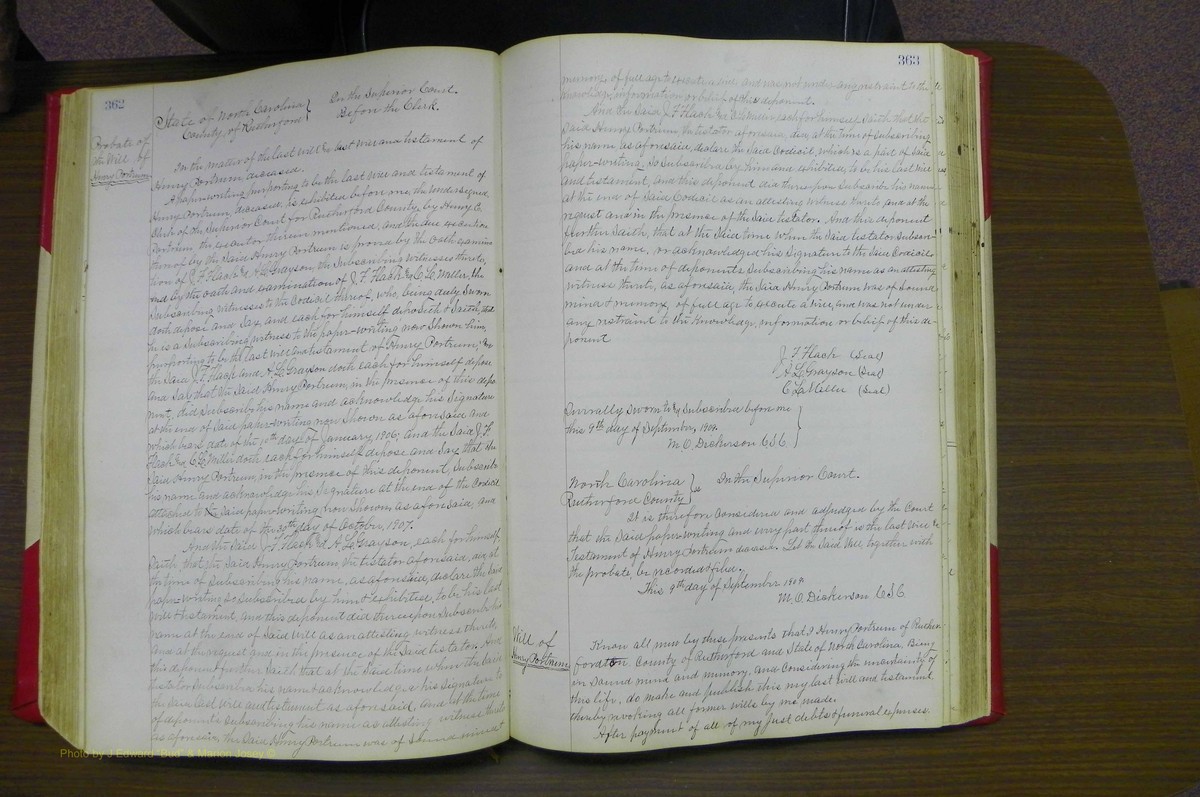 362
Probate of
the Will of
Henry Portrum
State of North Carolina } In the Superior Court.
County of Rutherford } Before the Clerk.
In the matter of the last will & testament of
Henry Portrum, deceased.
A paper-writing purporting to be the last will and testament of
Henry Portrum, deceased, is exhibited before me, the undersigned
Clerk of the Superior Court for Rutherford County, by Henry C.
Portrum the executor therein mentioned, and the due execution
thereof by the said Henry Portrum is proved by the oath & examina-
tion of J. F. Flack & A. L. Grayson, the subscribing witnesses thereto,
and by the oath and examination of J. F. Flack & C. L. Miller, the
subscribing witnesses to the Codicil thereof, who, being duly sworn
doth depose and say, and each for himself deposeth & saith, that
he is a subscribing witness to the paper-writing now shown him,
purporting to be the last will and testament of Henry Portrum;
the said J. F. Flack and A. L. Grayson doth each for himself depose
and say that the said Henry Portrum, in the presence of this depo-
nent, did subscribe his name and acknowledge his signature
at the end of said paper-writing now shown as aforesaid and
which bears date of the day of January, 1906, and the said J. F.
Flack & C. L. Miller doth each for himself depose and say that the
said Henry Portrum, in the presence of this deponent, subscribe
his name and acknowledge his signature at the end of the Codicil
attached to said paper-writing now shown, as aforesaid, and
which bears date of the 30th day of October, 1907.
And the said J. F. Flack & A. L. Grayson, each for himself
saith that the said Henry Portrum, the testator aforesaid, did at
the time of subscribing his name, as aforesaid, declare the said
paper-writing so subscribed by him & exhibited, to be his last
will & testament, and this deponent did thereupon subscribe his
name at the end of said will as an attesting witness thereto,
and at the request and in the presence of the said testator. And
this deponent further saith that at the said time when the said
testator subscribed his name & acknowledge his signature to
the said last will and testament as aforesaid, and at the time
of deponents subscribing his name as attesting witness thereto
as aforesaid, the said Henry Portrum was of sound mind &
363
memory, of full age to execute a will, and was not under any restraint to the
knowledge, information or belief of this deponent.
And the said J. F. Flack & C. L. Miller, each for himself saith that the
said Henry Portrum, the testator aforesaid, did, at the time of subscribing
his name, as aforesaid, declare the said Codicil, which is a part of said
paper-writing, so subscribed by him and exhibited, to be his last will
and testament, and this deponent did thereupon subscribe his name
at the end of said Codicil as an attesting witness thereto and at the
request and in the presence of the said testator. And this deponent
further saith, that at the said time when the said testator subscri-
bed his name, or acknowledged his signature to the said Codicil
and at the time of deponents subscribing his name as an attesting
witness thereto, as aforesaid, the said Henry Portrum was of sound
mind & memory, of full age to execute a will, and was not under
any restraint to the knowledge, information or belief of this de-
ponent
J. F. Flack (Seal)
A. L. Grayson (Seal)
C. L. Miller (Seal)
Severally sworn to & subscribed before me
this 9th day of September, 1909.
M. O. Dickerson C.S.C.
North Carolina } In the Superior Court.
Rutherford County } ss
It is therefore considered and adjudged by the Court
that the said paper-writing and every part thereof is the last will &
testament of Henry Portrum deceased. Let the said Will, together with
the probate, be recorded & filed.
This 9th day of September 1909.
M. O. Dickerson C.S.C.
Will of
Henry Portrum
Know all men by these presents that I Henry Portrum of Ruther-
fordton, County of Rutherford and State of North Carolina, Being
in sound mind and memory, and considering the uncertainty of
this life, do make and publish this my last will and testament,
thereby revoking all former wills by me made.
After payment of all of my just debts & funeral expenses.
Photo by J Edward "Bud" & Marion Josey ©